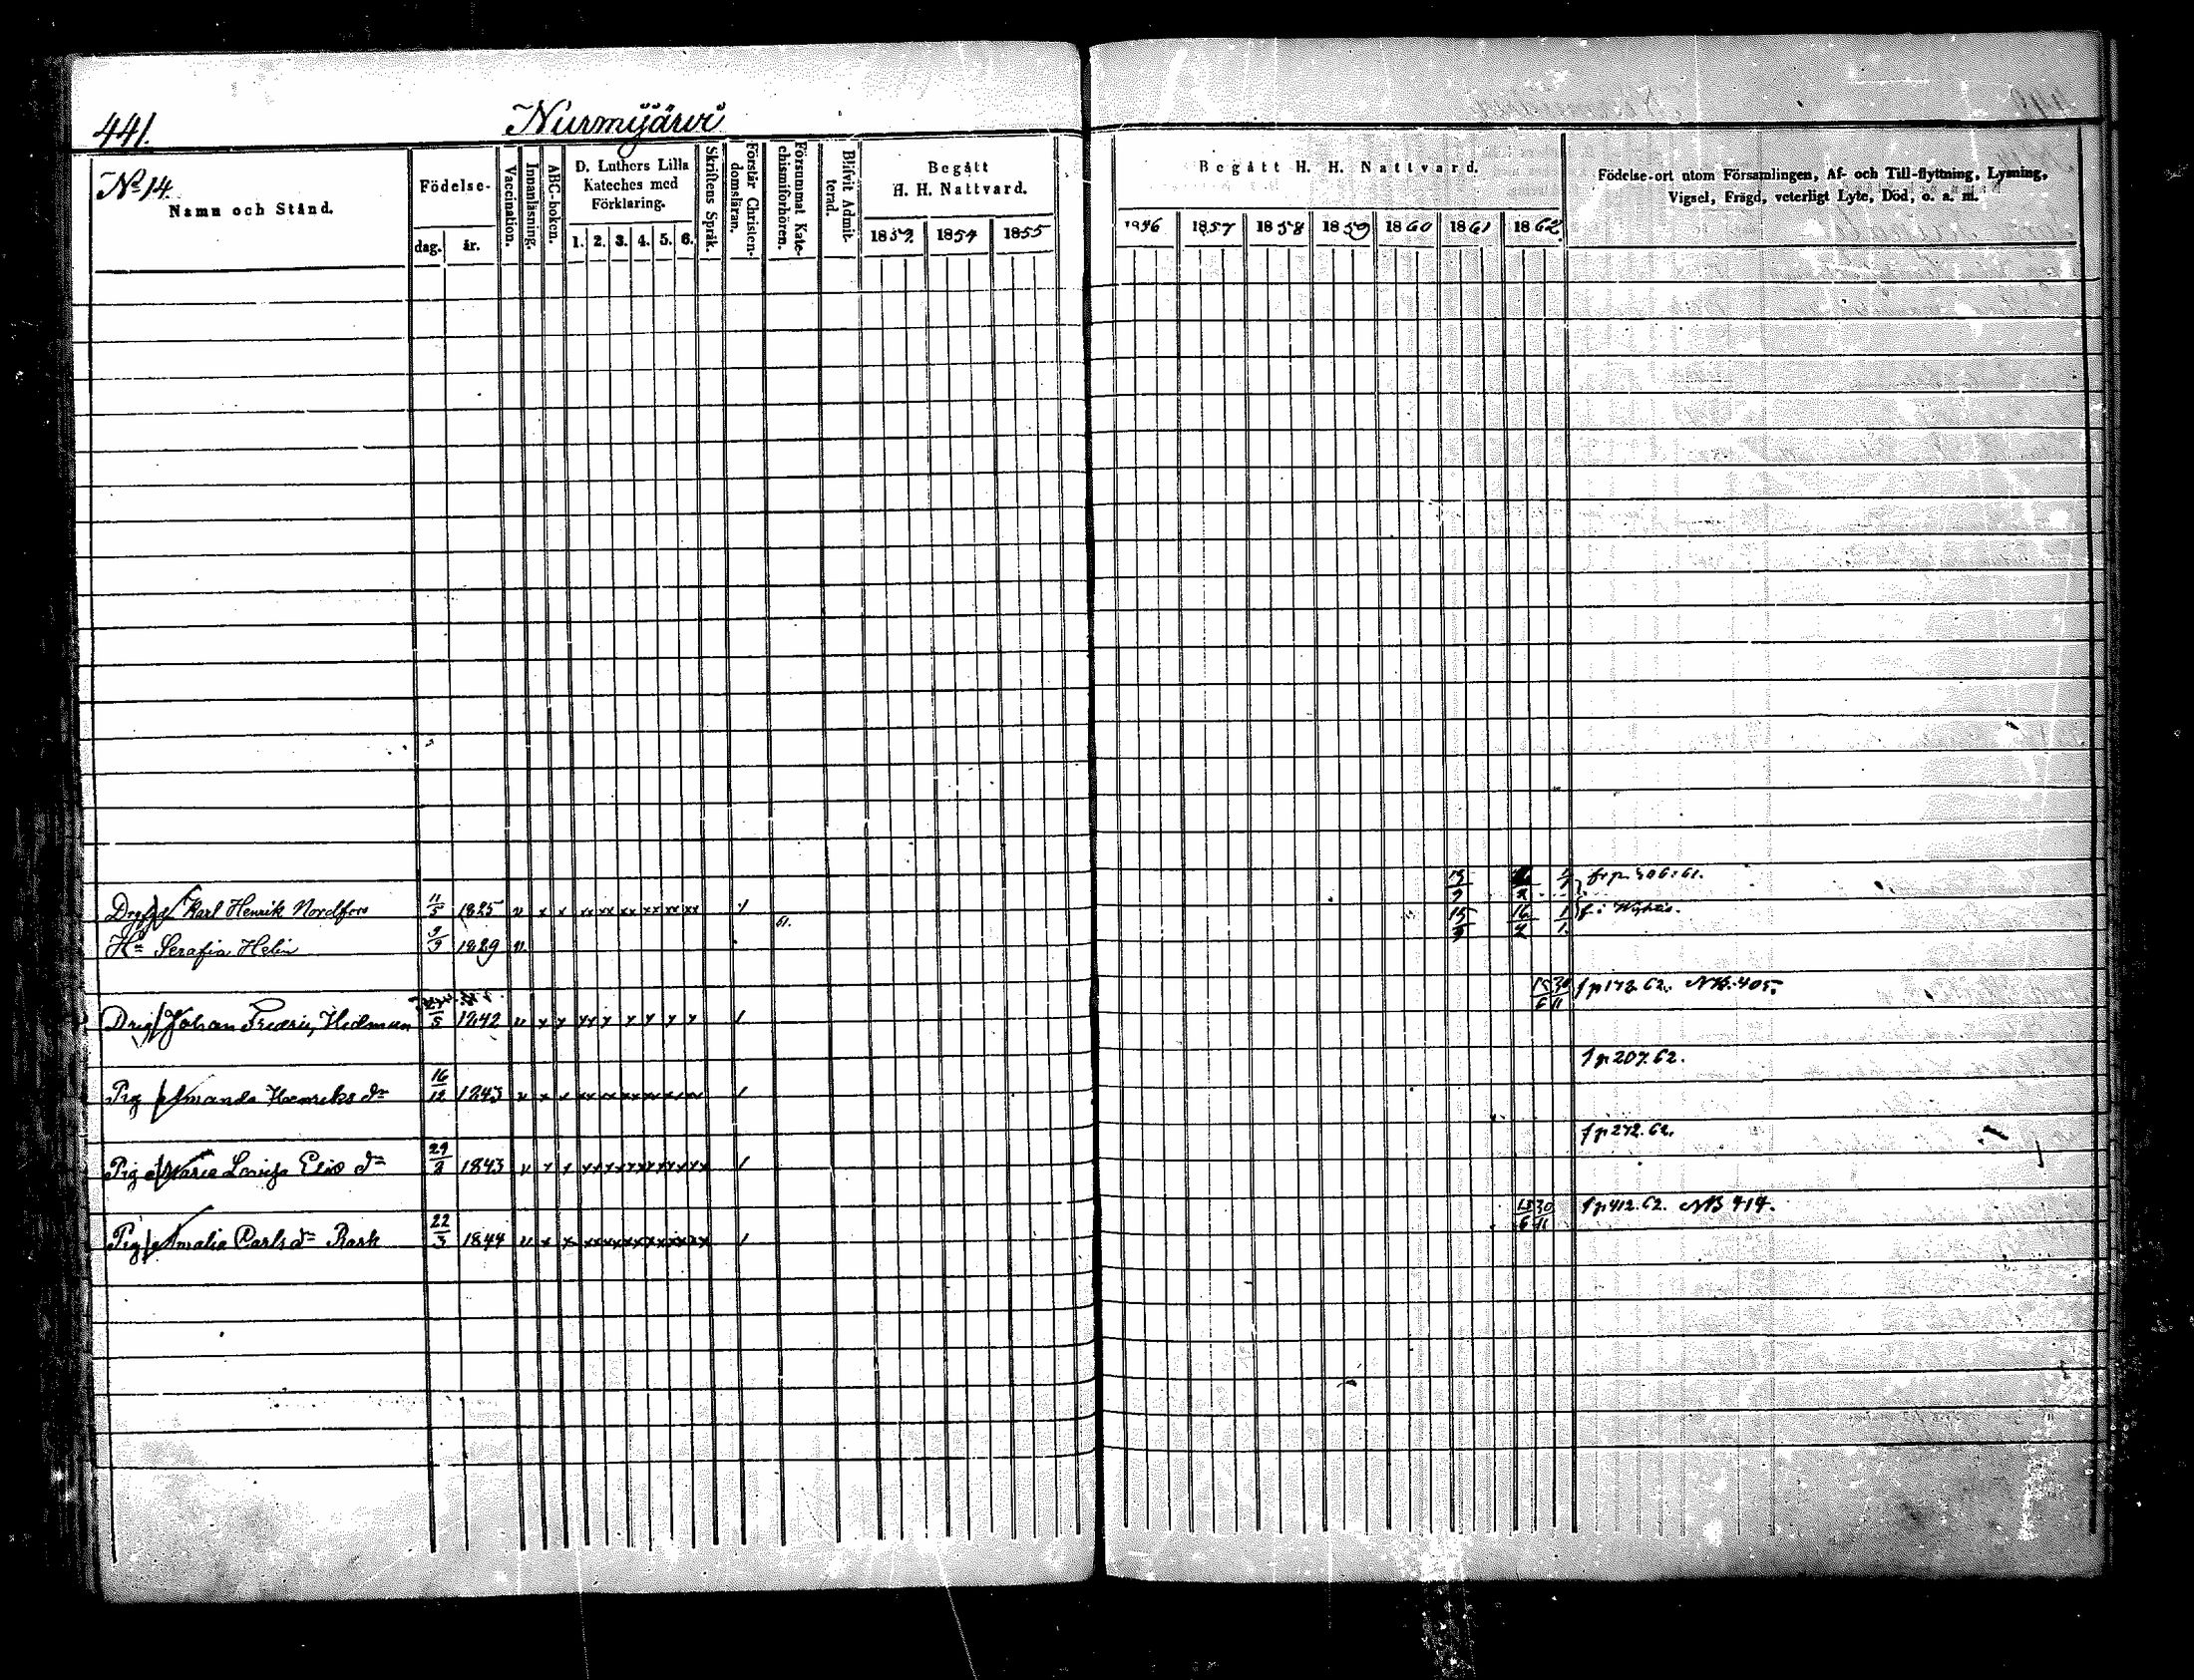 441. Nurmijärvi
No 14.
Namn och Stånd.
Födelse-
dag. år.
Vaccination.
Innanläsning.
ABC-boken.
D. Luthers Lilla
Kateches med
Förklaring.
1. 2. 3. 4. 5. 6.
Skriftens Språk.
Förstår Christen-
domsläran.
Försummat Kate-
chismiförhören.
Blifvit Admit-
terad.
Begått
H. H. Nattvard.
1853. 1854 1855
Begått H. H. Nattvard.
1856 1857 1858 1859 1860 1861 1862
Födelse-ort utom Församlingen, Af- och Till-flyttning, Lysning,
Vigsel, Frägd, veterligt Lyte, Död, o. a. m.
Karl Henrik Nordfors 11/5 1825 v x x xx xx xx xx xx xx 61. 15/9
Hu Serafia Helin 9/9 1829 v. 15/9 16
Johan Fredric Hedman 1842 v x x xx x x x x x / 15/6 30/11 f p 172. 62. NB. 405.
Pig Amanda Henriks dr 16/12 1843 v x x xx xx xx xx xx xx / f p 207. 62.
Pig Maria Lovisa Elio dr 1843 v x x xx xx xx xx xx xx / f p 272. 62.
Pig Amalia Carls dr Rask 22/3 1844 v x x xx xx xx xx xx xx / 15/6 30/11 f p 412. 62. NB 414.